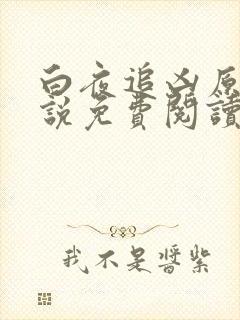 白夜追凶原
說免費閱讀
我不是醬紫